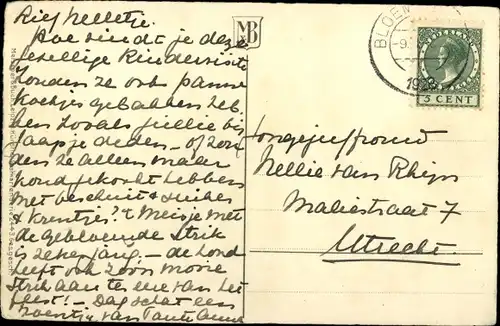 Lief Nelletje.
Hoe vindt je deze
gezellige Kindervisite
Zouden ze ook panne
koekjes gebakken heb
ben zooals jullie bij
Jaapje deden — of zou
den ze alleen maar
hond gekookt hebben
met beschuit & suiker
& krentjes? 't Meisje met
de gebloemde strik
is zeker jarig. — de hond
heeft ook zoo'n mooie
strik aan ter eere van het
feest! — Dag schat een
zoentje van Tante Anna
MB
BLOEM
-9.
19
5 CENT
Jongejuffrouw
Nellie van Rhijn
Maliestraat 7
Utrecht.